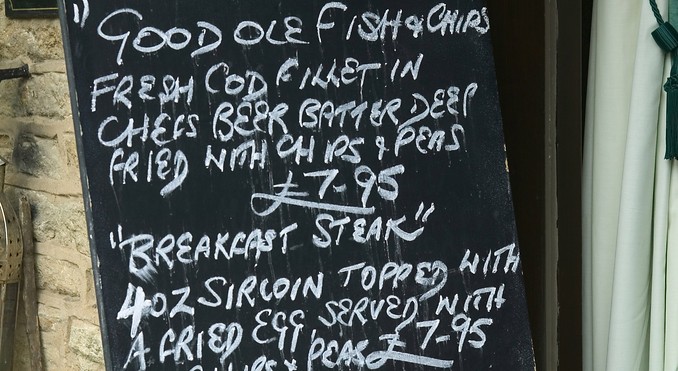 " GOOD OLE FISH & CHIPS
FRESH COD FILLET IN
CHEFS BEER BATTER DEEP
FRIED WITH CHIPS & PEAS
£7-95
"BREAKFAST STEAK"
4OZ SIRLOIN TOPPED WITH
A FRIED EGG SERVED WITH
CHIPS & PEAS £7-95